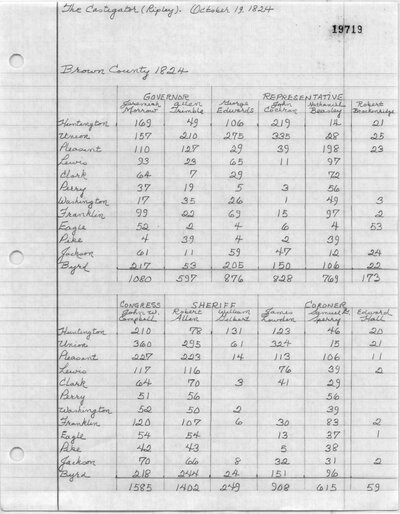 The Castigator (Ripley). October 19, 1824
19719
Brown County 1824
GOVERNOR REPRESENTATIVE
Jeremiah Morrow Allen Trimble George Edwards John Cochran Nathaniel Beasley Robert Breckenridge
Huntington 169 49 106 219 12 21
Union 157 210 275 335 28 25
Pleasant 110 127 29 39 198 23
Lewis 93 23 65 11 97
Clark 64 7 29 72
Perry 37 19 5 3 56
Washington 17 35 26 1 49 3
Franklin 99 22 69 15 97 2
Eagle 52 2 4 6 4 53
Pike 4 39 4 2 39
Jackson 61 11 59 47 12 24
Byrd 217 53 205 150 106 22
1080 597 876 828 769 173
CONGRESS SHERIFF CORONER
John W. Campbell Robert Allen William Gilbert James Lowden Samuel G. Sperry Edward Hall
Huntington 210 78 131 123 46 20
Union 360 295 61 324 15 21
Pleasant 227 223 14 113 106 11
Lewis 117 116 76 39 2
Clark 64 70 3 41 29
Perry 51 56 56
Washington 52 50 2 39
Franklin 120 107 6 30 83 2
Eagle 54 54 13 37 1
Pike 42 43 5 38
Jackson 70 66 8 32 31 2
Byrd 218 244 24 151 96
1585 1402 249 908 615 59